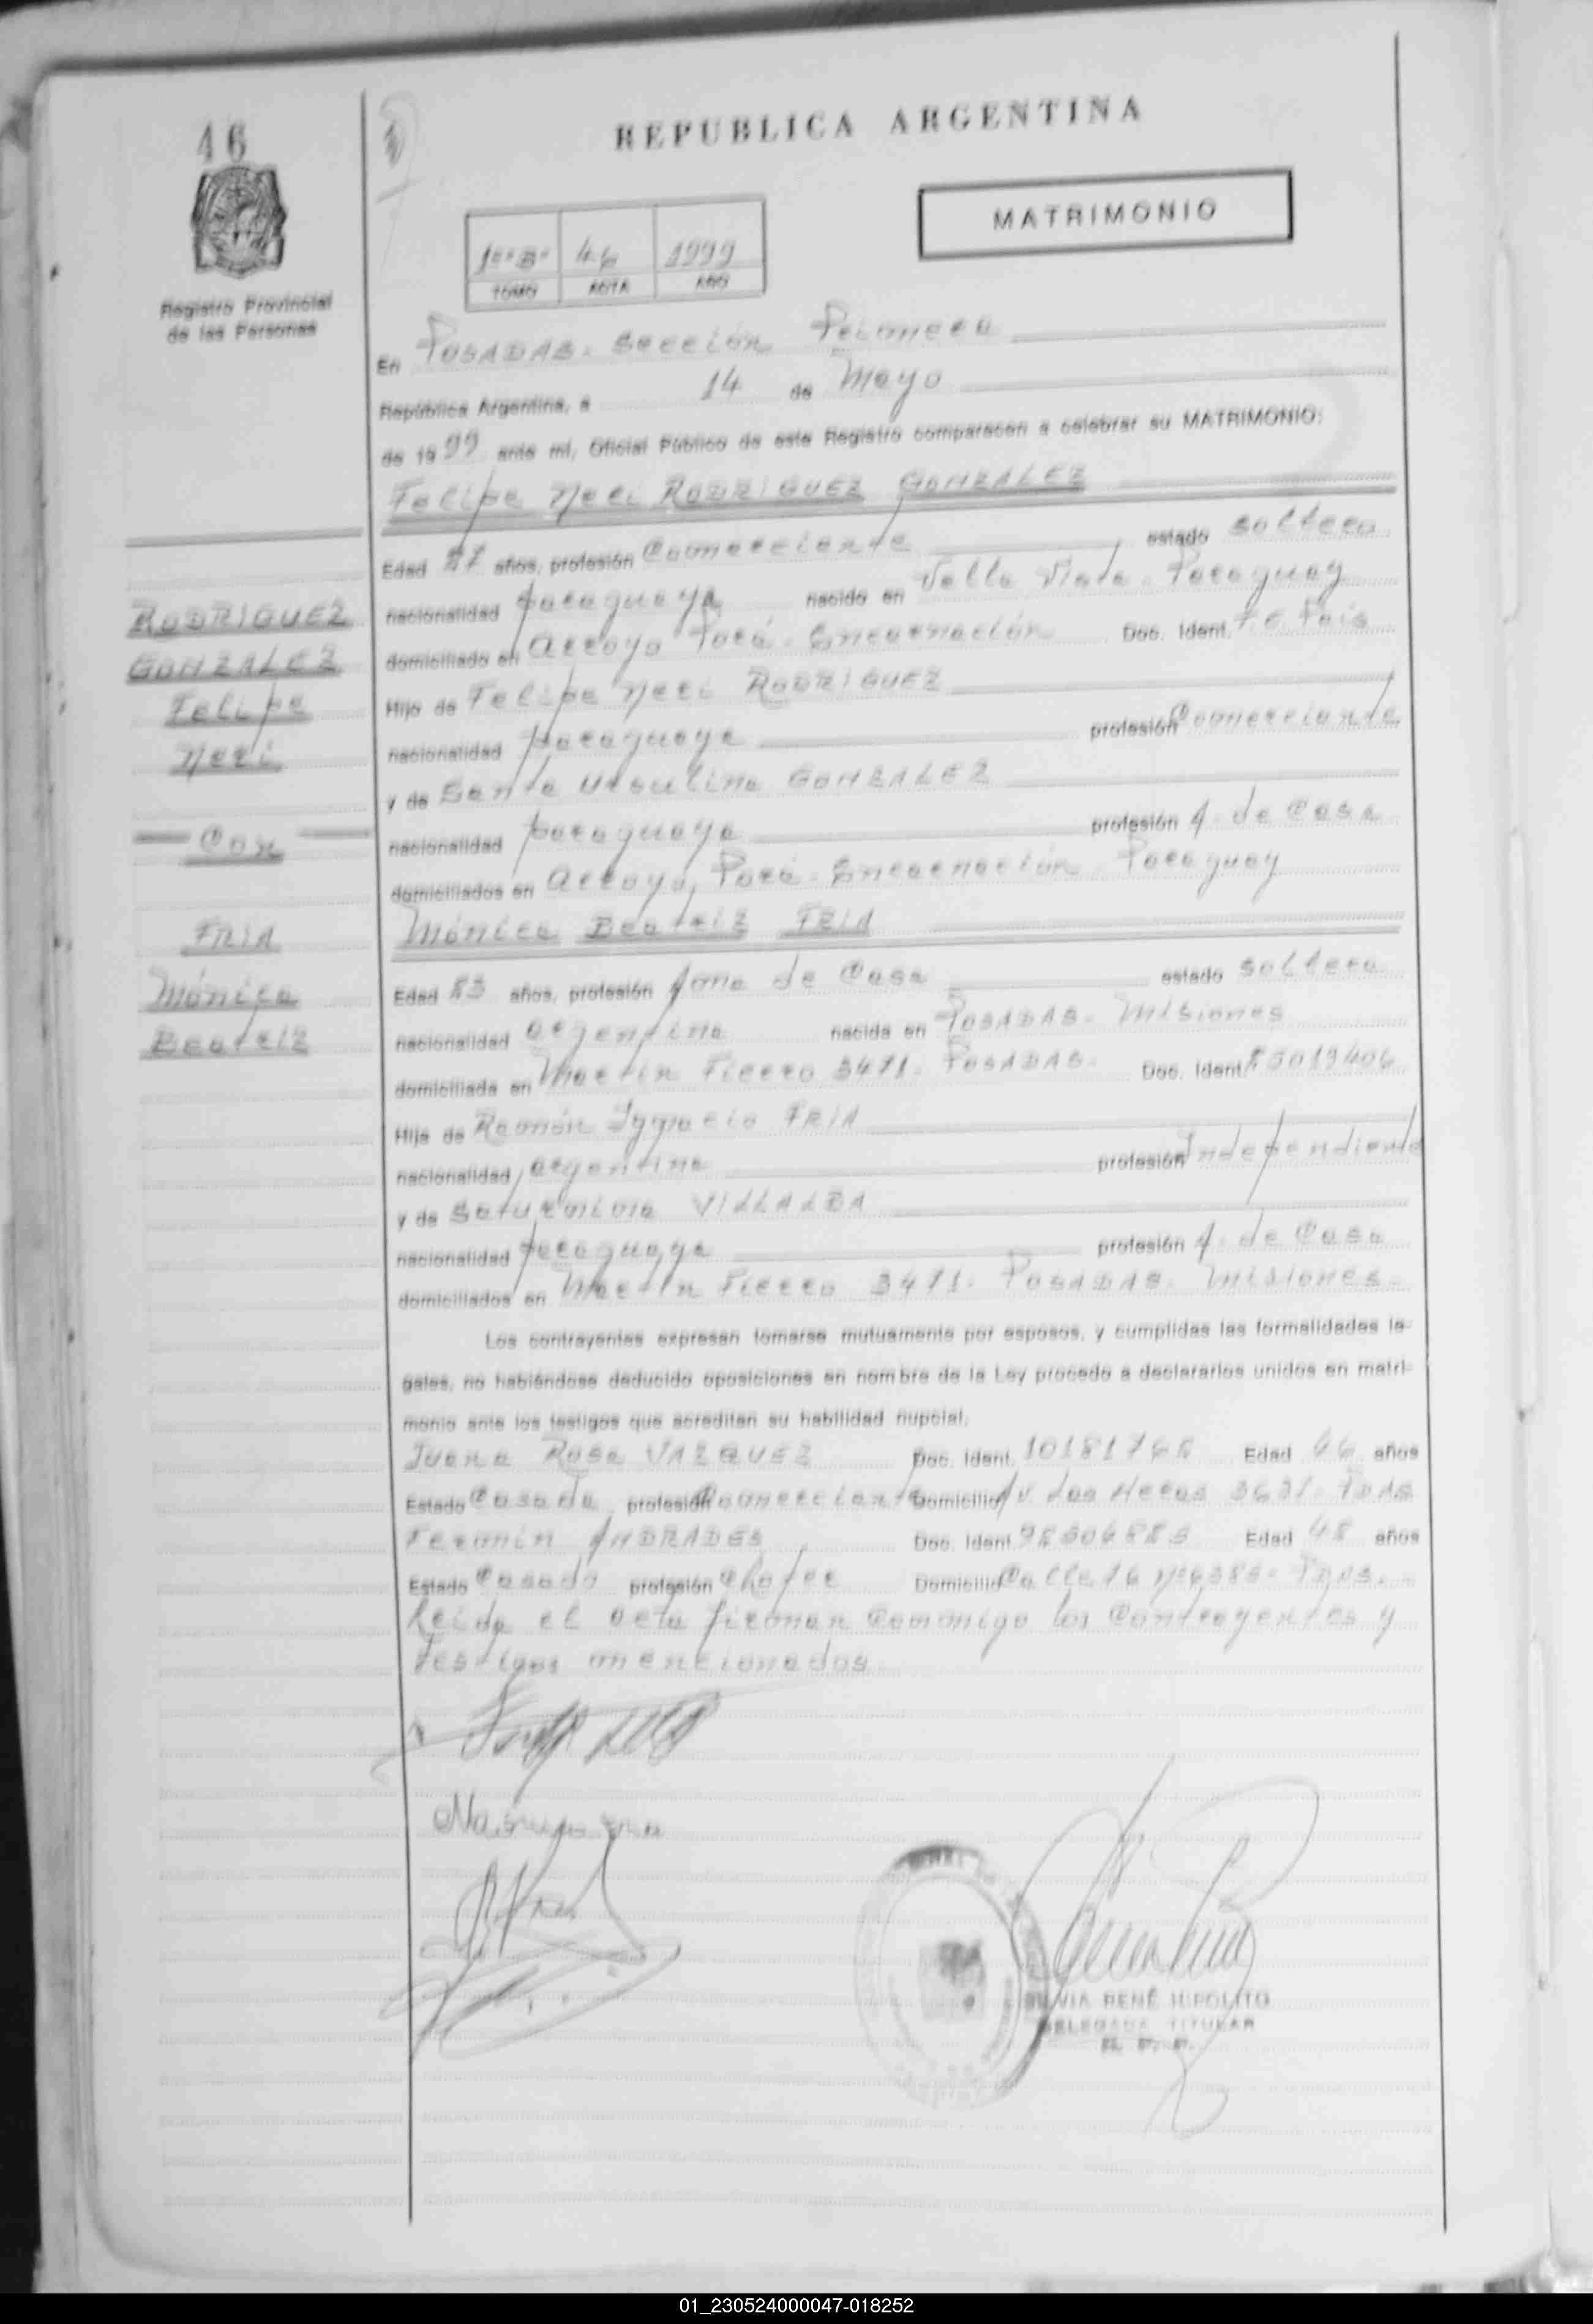 46
REPUBLICA ARGENTINA
MATRIMONIO
1º"B" 46 1999
TOMO ACTA AÑO
Registro Provincial
de las Personas
En POSADAS. Sección Primera
República Argentina, a 14 de Mayo
de 1999 ante mí, Oficial Público de este Registro comparecen a celebrar su MATRIMONIO:
Felipe Neri RODRIGUEZ GONZALEZ
Edad años, profesión Comerciante estado soltero
nacionalidad paraguaya nacido en Paraguay
domiciliado en Arroyo Porá - Encarnación Doc. Ident.
Hijo de Felipe Neri RODRIGUEZ
nacionalidad paraguaya profesión Comerciante
y de Santa Ursulina GONZALEZ
nacionalidad paraguaya profesión A. de Casa
domiciliados en Arroyo Porá - Encarnación - Paraguay
Mónica Beatriz FRIA
Edad años, profesión Ama de Casa estado soltera
nacionalidad argentina nacida en POSADAS - Misiones
domiciliada en Martín Fierro 3471. POSADAS. Doc. Ident.
Hija de Ramón Ignacio FRIA
nacionalidad argentina profesión Independiente
y de Saturnina VILLALBA
nacionalidad paraguaya profesión A. de Casa
domiciliados en Martín Fierro 3471. POSADAS. Misiones.
RODRIGUEZ
GONZALEZ
Felipe
Neri
Con
FRIA
Mónica
Beatriz
Los contrayentes expresan tomarse mutuamente por esposos, y cumplidas las formalidades le-
gales, no habiéndose deducido oposiciones en nombre de la Ley procedo a declararlos unidos en matri-
monio ante los testigos que acreditan su habilidad nupcial.
Juana Rosa VAZQUEZ Doc. Ident. Edad 46 años
Estado Casada profesión Comerciante Domicilio Av. Las Heras
Fermín ANDRADES Doc. Ident. Edad 48 años
Estado Casado profesión Chofer Domicilio Calle
Leida el acta firman conmigo los contrayentes y
testigos mencionados
SILVIA RENÉ HIPOLITO
DELEGADA TITULAR
R. P. P.
01_230524000047-018252